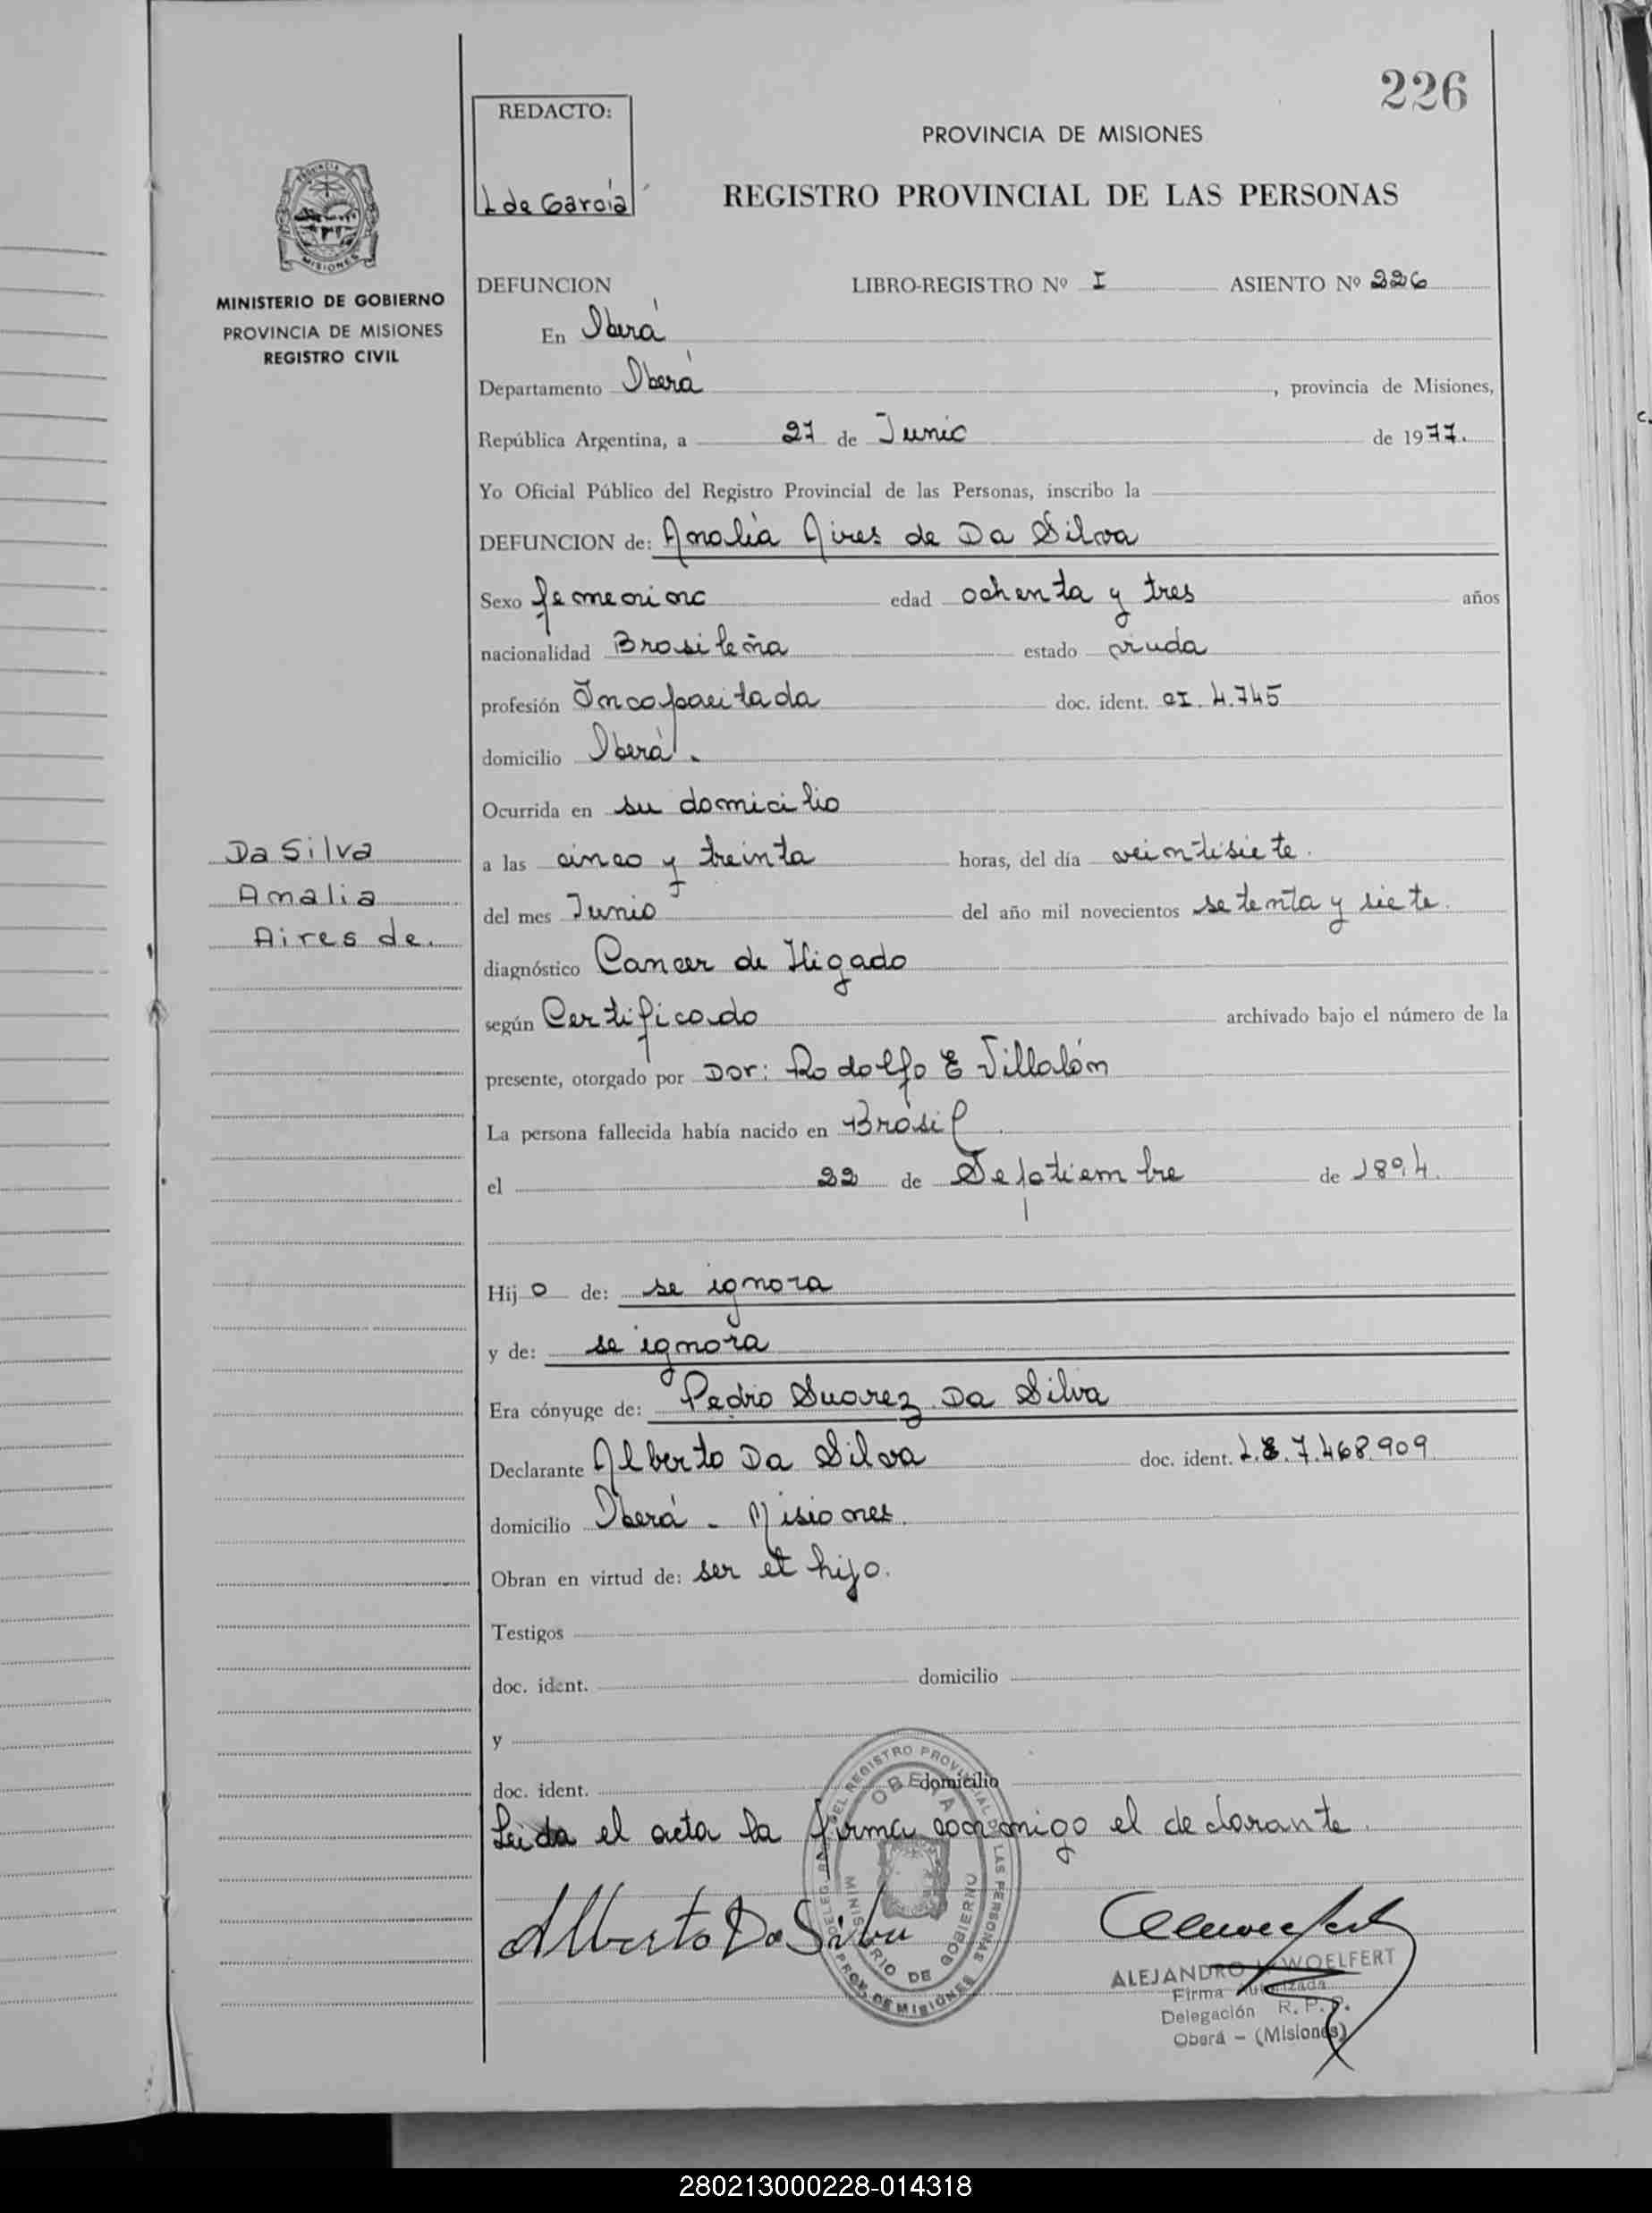 226
REDACTO:
L de García
PROVINCIA DE MISIONES
REGISTRO PROVINCIAL DE LAS PERSONAS
PROVINCIA
MISIONES
MINISTERIO DE GOBIERNO
PROVINCIA DE MISIONES
REGISTRO CIVIL
DEFUNCION LIBRO-REGISTRO Nº I ASIENTO Nº 226
En Oberá
Departamento Oberá, provincia de Misiones,
República Argentina, a 27 de Junio de 1977.
Yo Oficial Público del Registro Provincial de las Personas, inscribo la
DEFUNCION de: Amalia Aires de Da Silva
Sexo femenino edad ochenta y tres años
nacionalidad Brasileña estado viuda
profesión Incapacitada doc. ident. CI. 4.745
domicilio Oberá.
Ocurrida en su domicilio
a las cinco y treinta horas, del día veintisiete.
del mes Junio del año mil novecientos setenta y siete.
diagnóstico Cancer de Higado
según Certificado archivado bajo el número de la
presente, otorgado por Dor: Rodolfo E Villalón
La persona fallecida había nacido en Brasil
el 22 de Septiembre de 1894.
Da Silva
Amalia
Aires de.
Hijo de: se ignora
y de: se ignora
Era cónyuge de: Pedro Suarez Da Silva
Declarante Alberto Da Silva doc. ident. L.E. 7.468.909
domicilio Oberá - Misiones.
Obran en virtud de: ser el hijo.
Testigos
doc. ident. domicilio
y
doc. ident. domicilio
Leida el acta la firma conmigo el declarante.
Alberto Da Silva
DEL REGISTRO PROVINCIAL DE LAS PERSONAS
OBERA
MINISTERIO DE GOBIERNO
PROV. DE MISIONES
ALEJANDRO WOELFERT
Firma Autorizada
Delegación R. P. P.
Oberá - (Misiones)
280213000228-014318